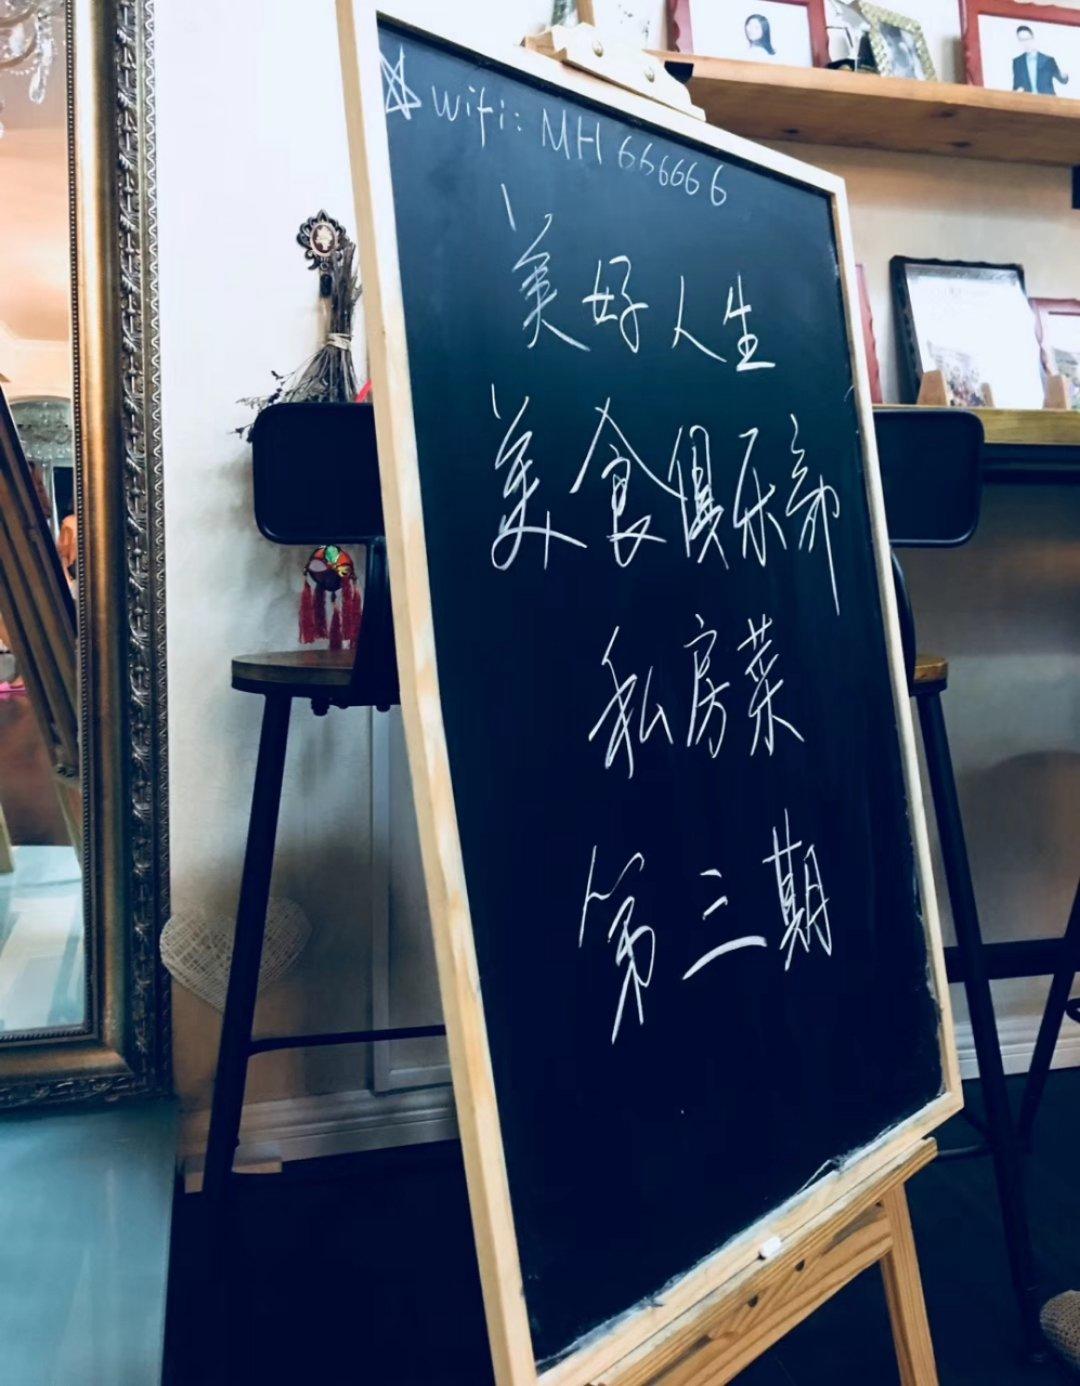 wifi: MH 666666
美好人生
美食俱乐部
私房菜
第三期